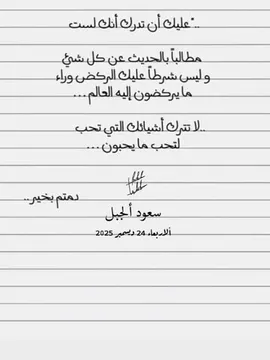 .."عليك أن تدرك أنك لست
مطالباً بالحديث عن كل شئ
و ليس شرطاً عليك الركض وراء
ما يركضون إليه العالم...
..لا تترك أشيائك التي تحب
لتحب ما يحبون...
دمتم بخير..
سعود ألجبل
ألاربعاء 24 ديسمبر 2025